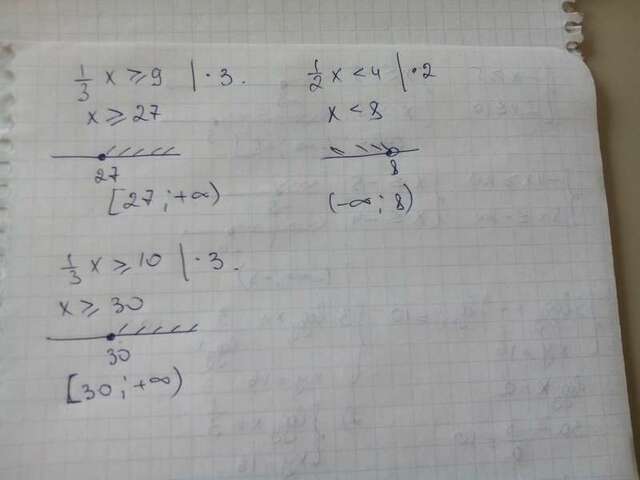 1/3 x ≥ 9 | · 3.
x ≥ 27
27
[27; +∞)
1/2 x < 4 | · 2
x < 8
8
(-∞; 8)
1/3 x ≥ 10 | · 3.
x ≥ 30
30
[30; +∞)